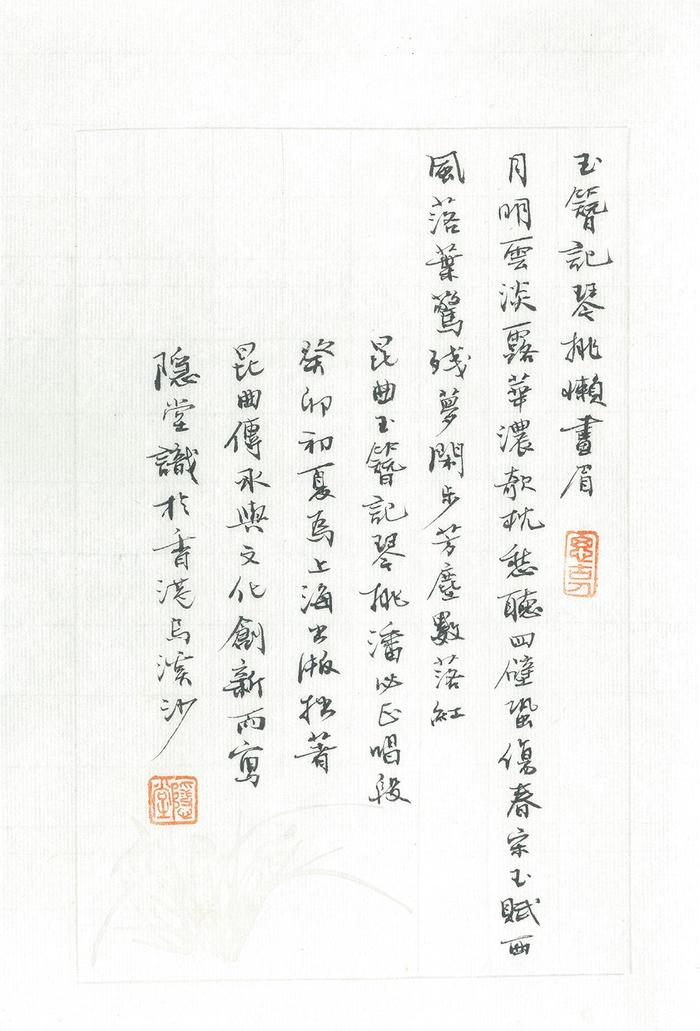 玉簪記琴挑懶畫眉
月明雲淡露華濃欹枕愁聽四壁蛩傷春宋玉賦西
風落葉驚殘夢閑步芳塵數落紅
昆曲玉簪記琴挑潘必正唱段
癸卯初夏為上海出版拙著
昆曲傳承與文化創新而寫
隱堂識於香港烏溪沙
隱堂